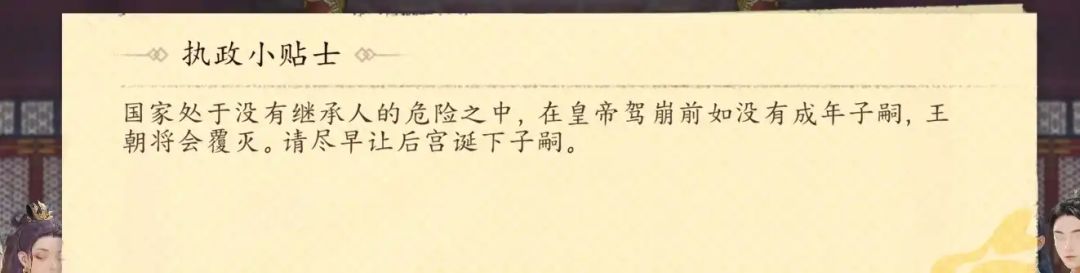 执政小贴士
国家处于没有继承人的危险之中,在皇帝驾崩前如没有成年子嗣,王
朝将会覆灭。请尽早让后宫诞下子嗣。